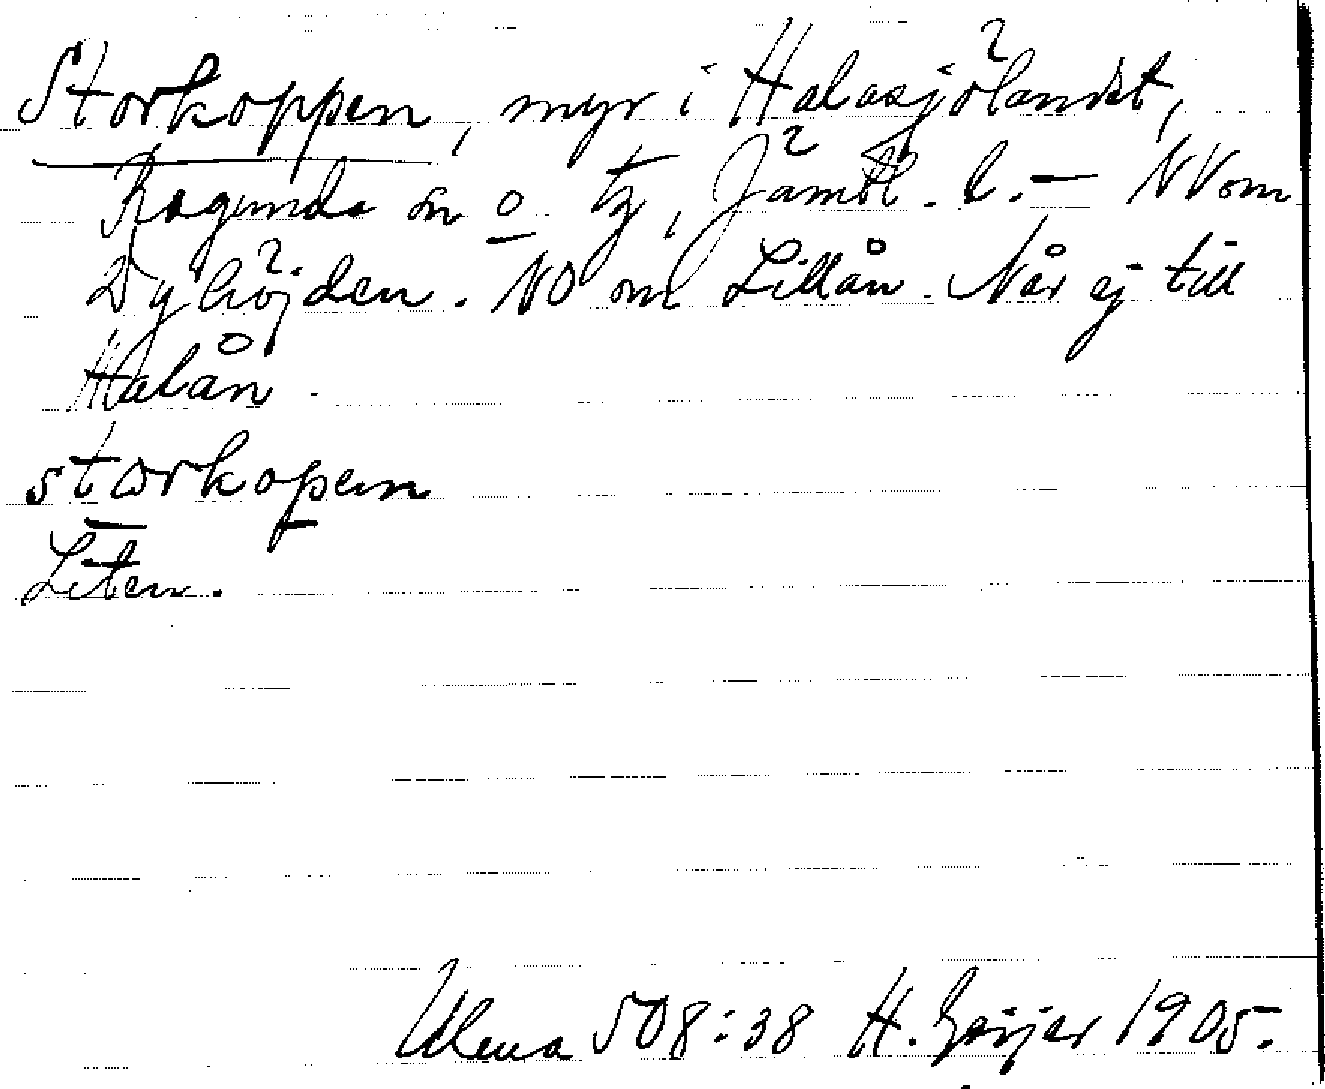 Storkoppen, myr i Halasjölandet,
Ragunda sn o. tg, Jämtl. l. — NV om
Dyhöjden. NO om Lillån. Når ej till
Halån.
storkopen
Liten.
Ulma 508:38 H. Geijer 1905.